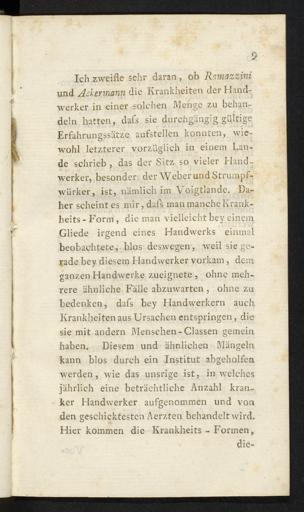 9
Ich zweifle sehr daran, ob Ramazzini
und Ackermann die Krankheiten der Hand-
werker in einer solchen Menge zu behan-
deln hatten, daſs sie durchgängig gültige
Erfahrungssätze aufstellen konnten, wie-
wohl letzterer vorzüglich in einem Lan-
de schrieb, das der Sitz so vieler Hand-
werker, besonder der Weber und Strumpf-
würker, ist, nämlich im Voigtlande. Da-
her scheint es mir, daſs man manche Krank-
heits-Form, die man vielleicht bey einem
Gliede irgend eines Handwerks einmal
beobachtete, blos deswegen, weil sie ge-
rade bey diesem Handwerker vorkam, dem
ganzen Handwerke zueignete, ohne meh-
rere ähnliche Fälle abzuwarten, ohne zu
bedenken, daſs bey Handwerkern auch
Krankheiten aus Ursachen entspringen, die
sie mit andern Menschen-Classen gemein
haben. Diesem und ähnlichen Mängeln
kann blos durch ein Institut abgeholfen
werden, wie das unsrige ist, in welches
jährlich eine beträchtliche Anzahl kran-
ker Handwerker aufgenommen und von
den geschicktesten Aerzten behandelt wird.
Hier kommen die Krankheits-Formen,
die-